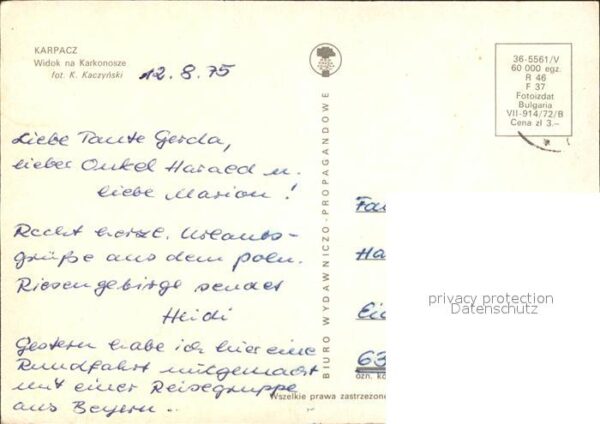 KARPACZ
Widok na Karkonosze
fot. K. Kaczyński
12.8.75
36-5561/V
60 000 egz.
R 46
F 37
Fotoizdat
Bulgaria
VII-914/72/B
Cena zł 3.–
Liebe Tante Gerda,
lieber Onkel Harald u.
liebe Marion!
Recht herzl. Urlaubs-
grüße aus dem poln.
Riesengebirge sendet
Heidi
Gestern habe ich hier eine
Rundfahrt mitgemacht
mit einer Reisegruppe
aus Bayern..
BIURO WYDAWNICZO-PROPAGANDOWE
Fa
Ha
Ei
63
ozn. ko
Wszelkie prawa zastrzeżone
privacy protection
Datenschutz